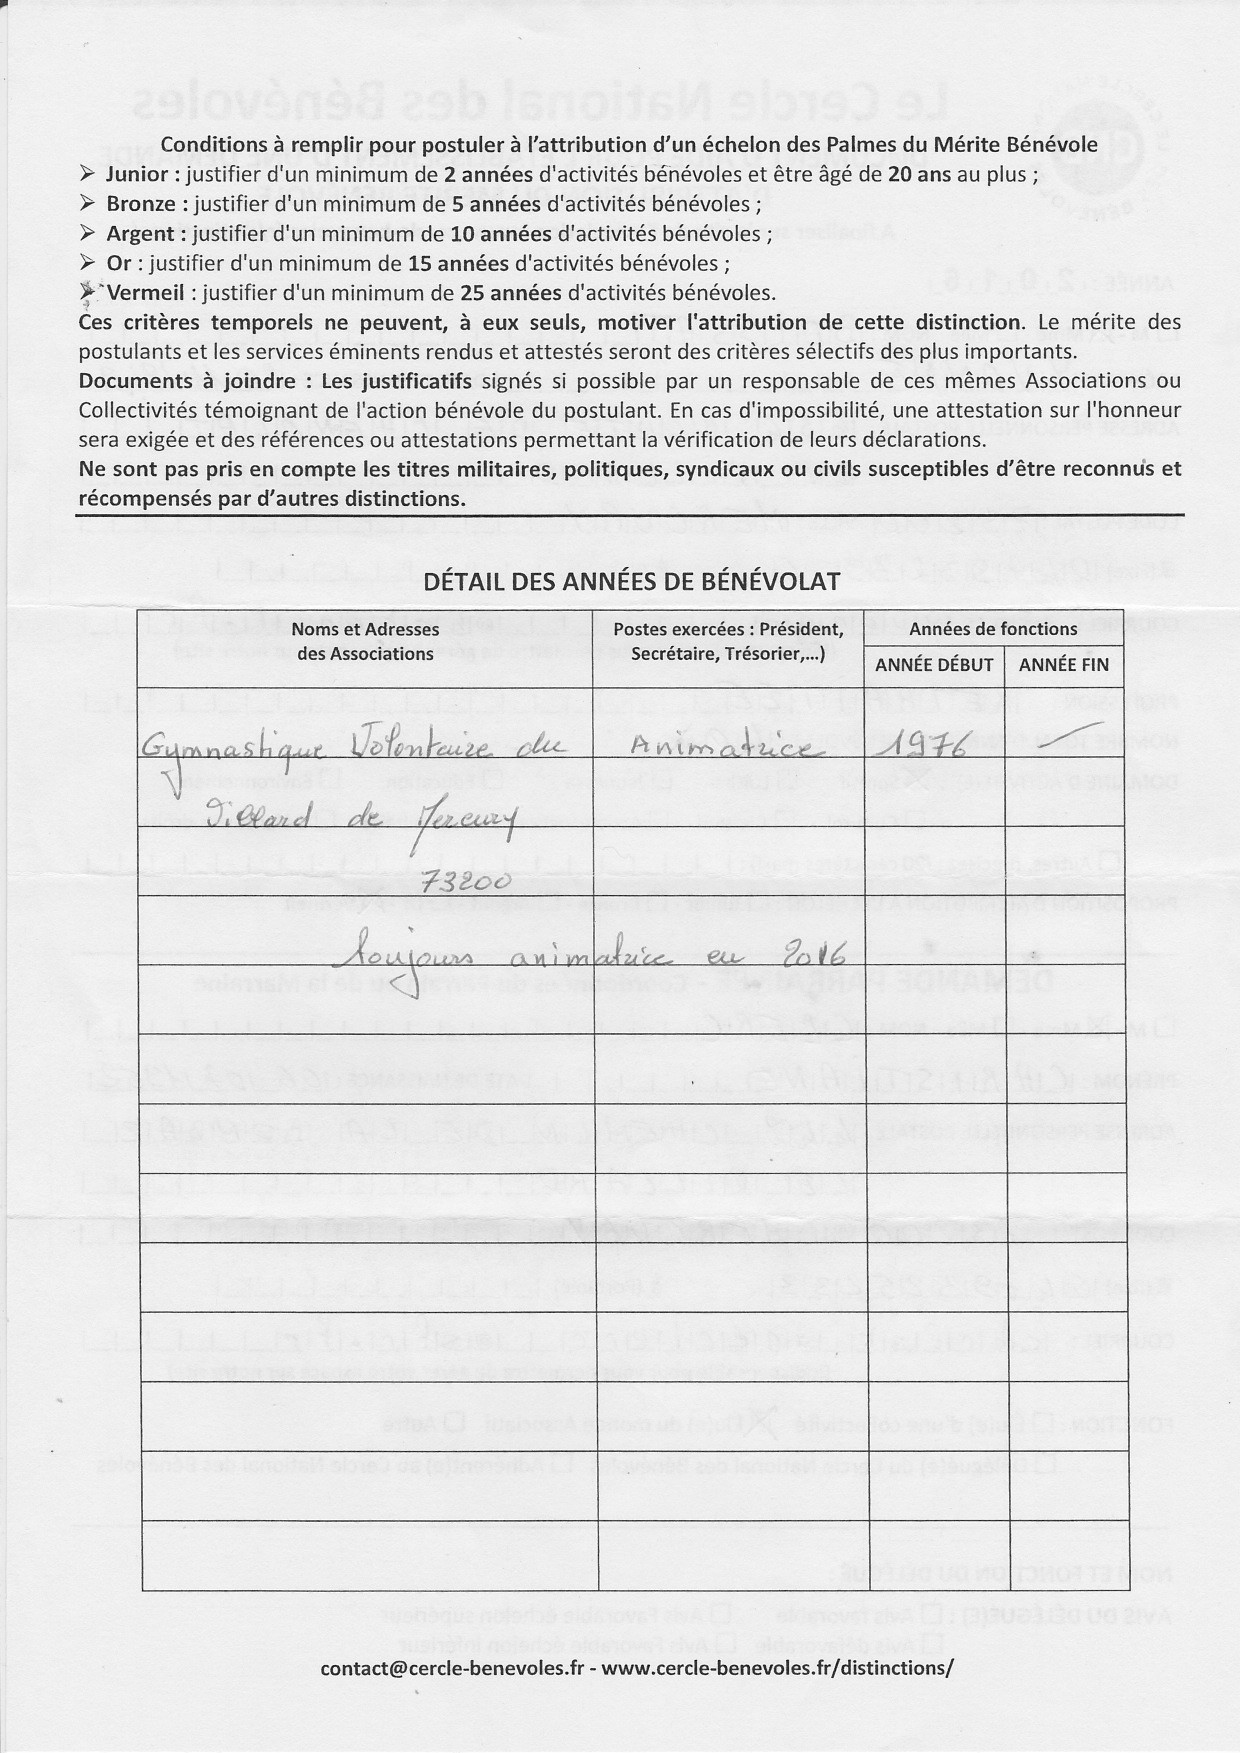 Conditions à remplir pour postuler à l'attribution d'un échelon des Palmes du Mérite Bénévole
➢ Junior : justifier d'un minimum de 2 années d'activités bénévoles et être âgé de 20 ans au plus ;
➢ Bronze : justifier d'un minimum de 5 années d'activités bénévoles ;
➢ Argent : justifier d'un minimum de 10 années d'activités bénévoles ;
➢ Or : justifier d'un minimum de 15 années d'activités bénévoles ;
➢ Vermeil : justifier d'un minimum de 25 années d'activités bénévoles.
Ces critères temporels ne peuvent, à eux seuls, motiver l'attribution de cette distinction. Le mérite des
postulants et les services éminents rendus et attestés seront des critères sélectifs des plus importants.
Documents à joindre : Les justificatifs signés si possible par un responsable de ces mêmes Associations ou
Collectivités témoignant de l'action bénévole du postulant. En cas d'impossibilité, une attestation sur l'honneur
sera exigée et des références ou attestations permettant la vérification de leurs déclarations.
Ne sont pas pris en compte les titres militaires, politiques, syndicaux ou civils susceptibles d'être reconnus et
récompensés par d'autres distinctions.
DÉTAIL DES ANNÉES DE BÉNÉVOLAT
Noms et Adresses
des Associations
Postes exercées : Président,
Secrétaire, Trésorier,...)
Années de fonctions
ANNÉE DÉBUT ANNÉE FIN
Gymnastique Volontaire du Animatrice 1976 —
Villard de Mercury
73200
toujours animatrice en 2016
contact@cercle-benevoles.fr - www.cercle-benevoles.fr/distinctions/